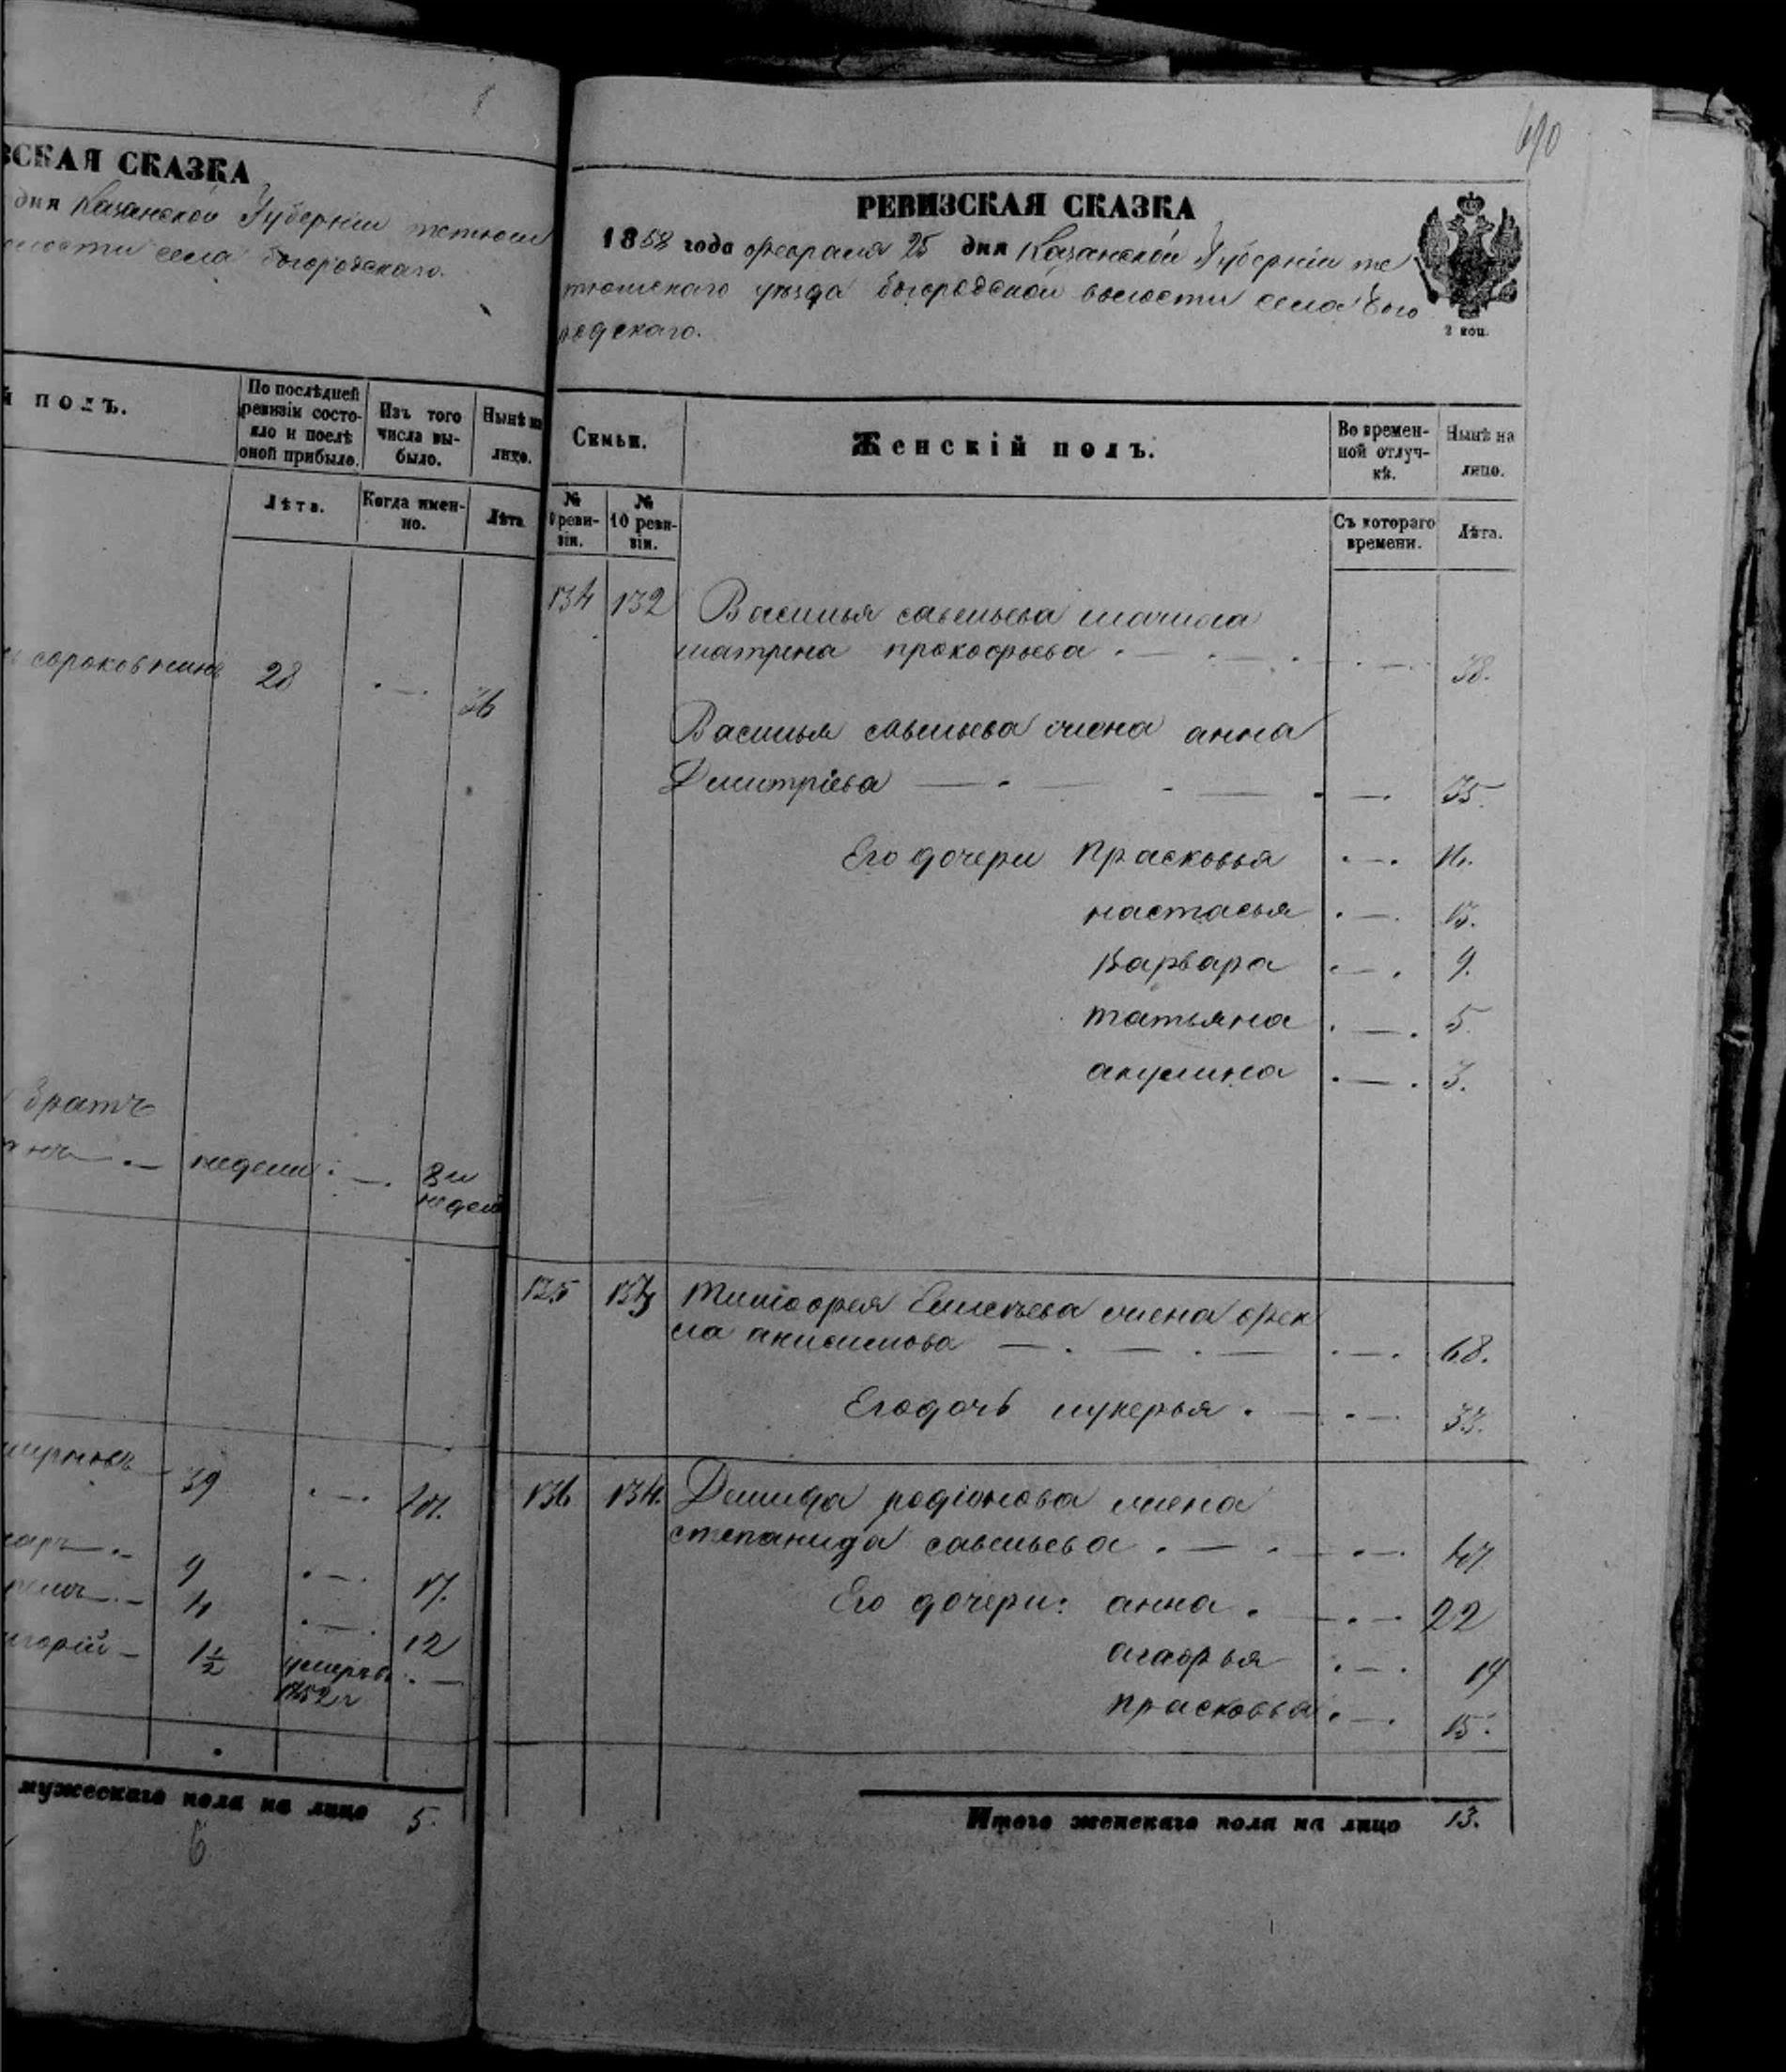 ВСКАЯ СКАЗКА
дня Казанской Губернiи тетюш
волости села Богородскаго.
й полъ.
По послѣдней ревизiи состояло и послѣ оной прибыло.
Изъ того числа выбыло.
Нынѣ на лицо.
Лѣта.
Когда именно.
Лѣта
сороковкинъ 28 36
Братъ
недели 8 и недел
39 47.
9 17.
4 12
игорiй 1½ умеръ въ 1852 г
мужескаго пола на лицо 5.
6
690
РЕВИЗСКАЯ СКАЗКА
1858 года февраля 25 дня Казанской Губернiи те
тюшскаго уезда Богородской волости села Бого
родскаго.
2 коп.
Семьи.
Женскiй полъ.
Во временной отлучкѣ.
Нынѣ на лицо.
№ 9 ревизiи.
№ 10 ревизiи.
Съ котораго времени.
Лѣта.
134 132 Василья савельева мачиха
матрена прокофьева 38.
Василья савельева жена анна
Дмитрiева 35.
Его дочери Прасковья
настасья 13.
Варвара 9.
татьяна 5.
акулина 3.
135 133 Тимофея жена фек
ла анисимова 68.
Его дочь лукерья 33.
136 134. Демида родiонова жена
степанида савельева 47
Его дочери: анна 22
агафья 19
прасковья 15.
Итого женскаго пола на лицо 13.